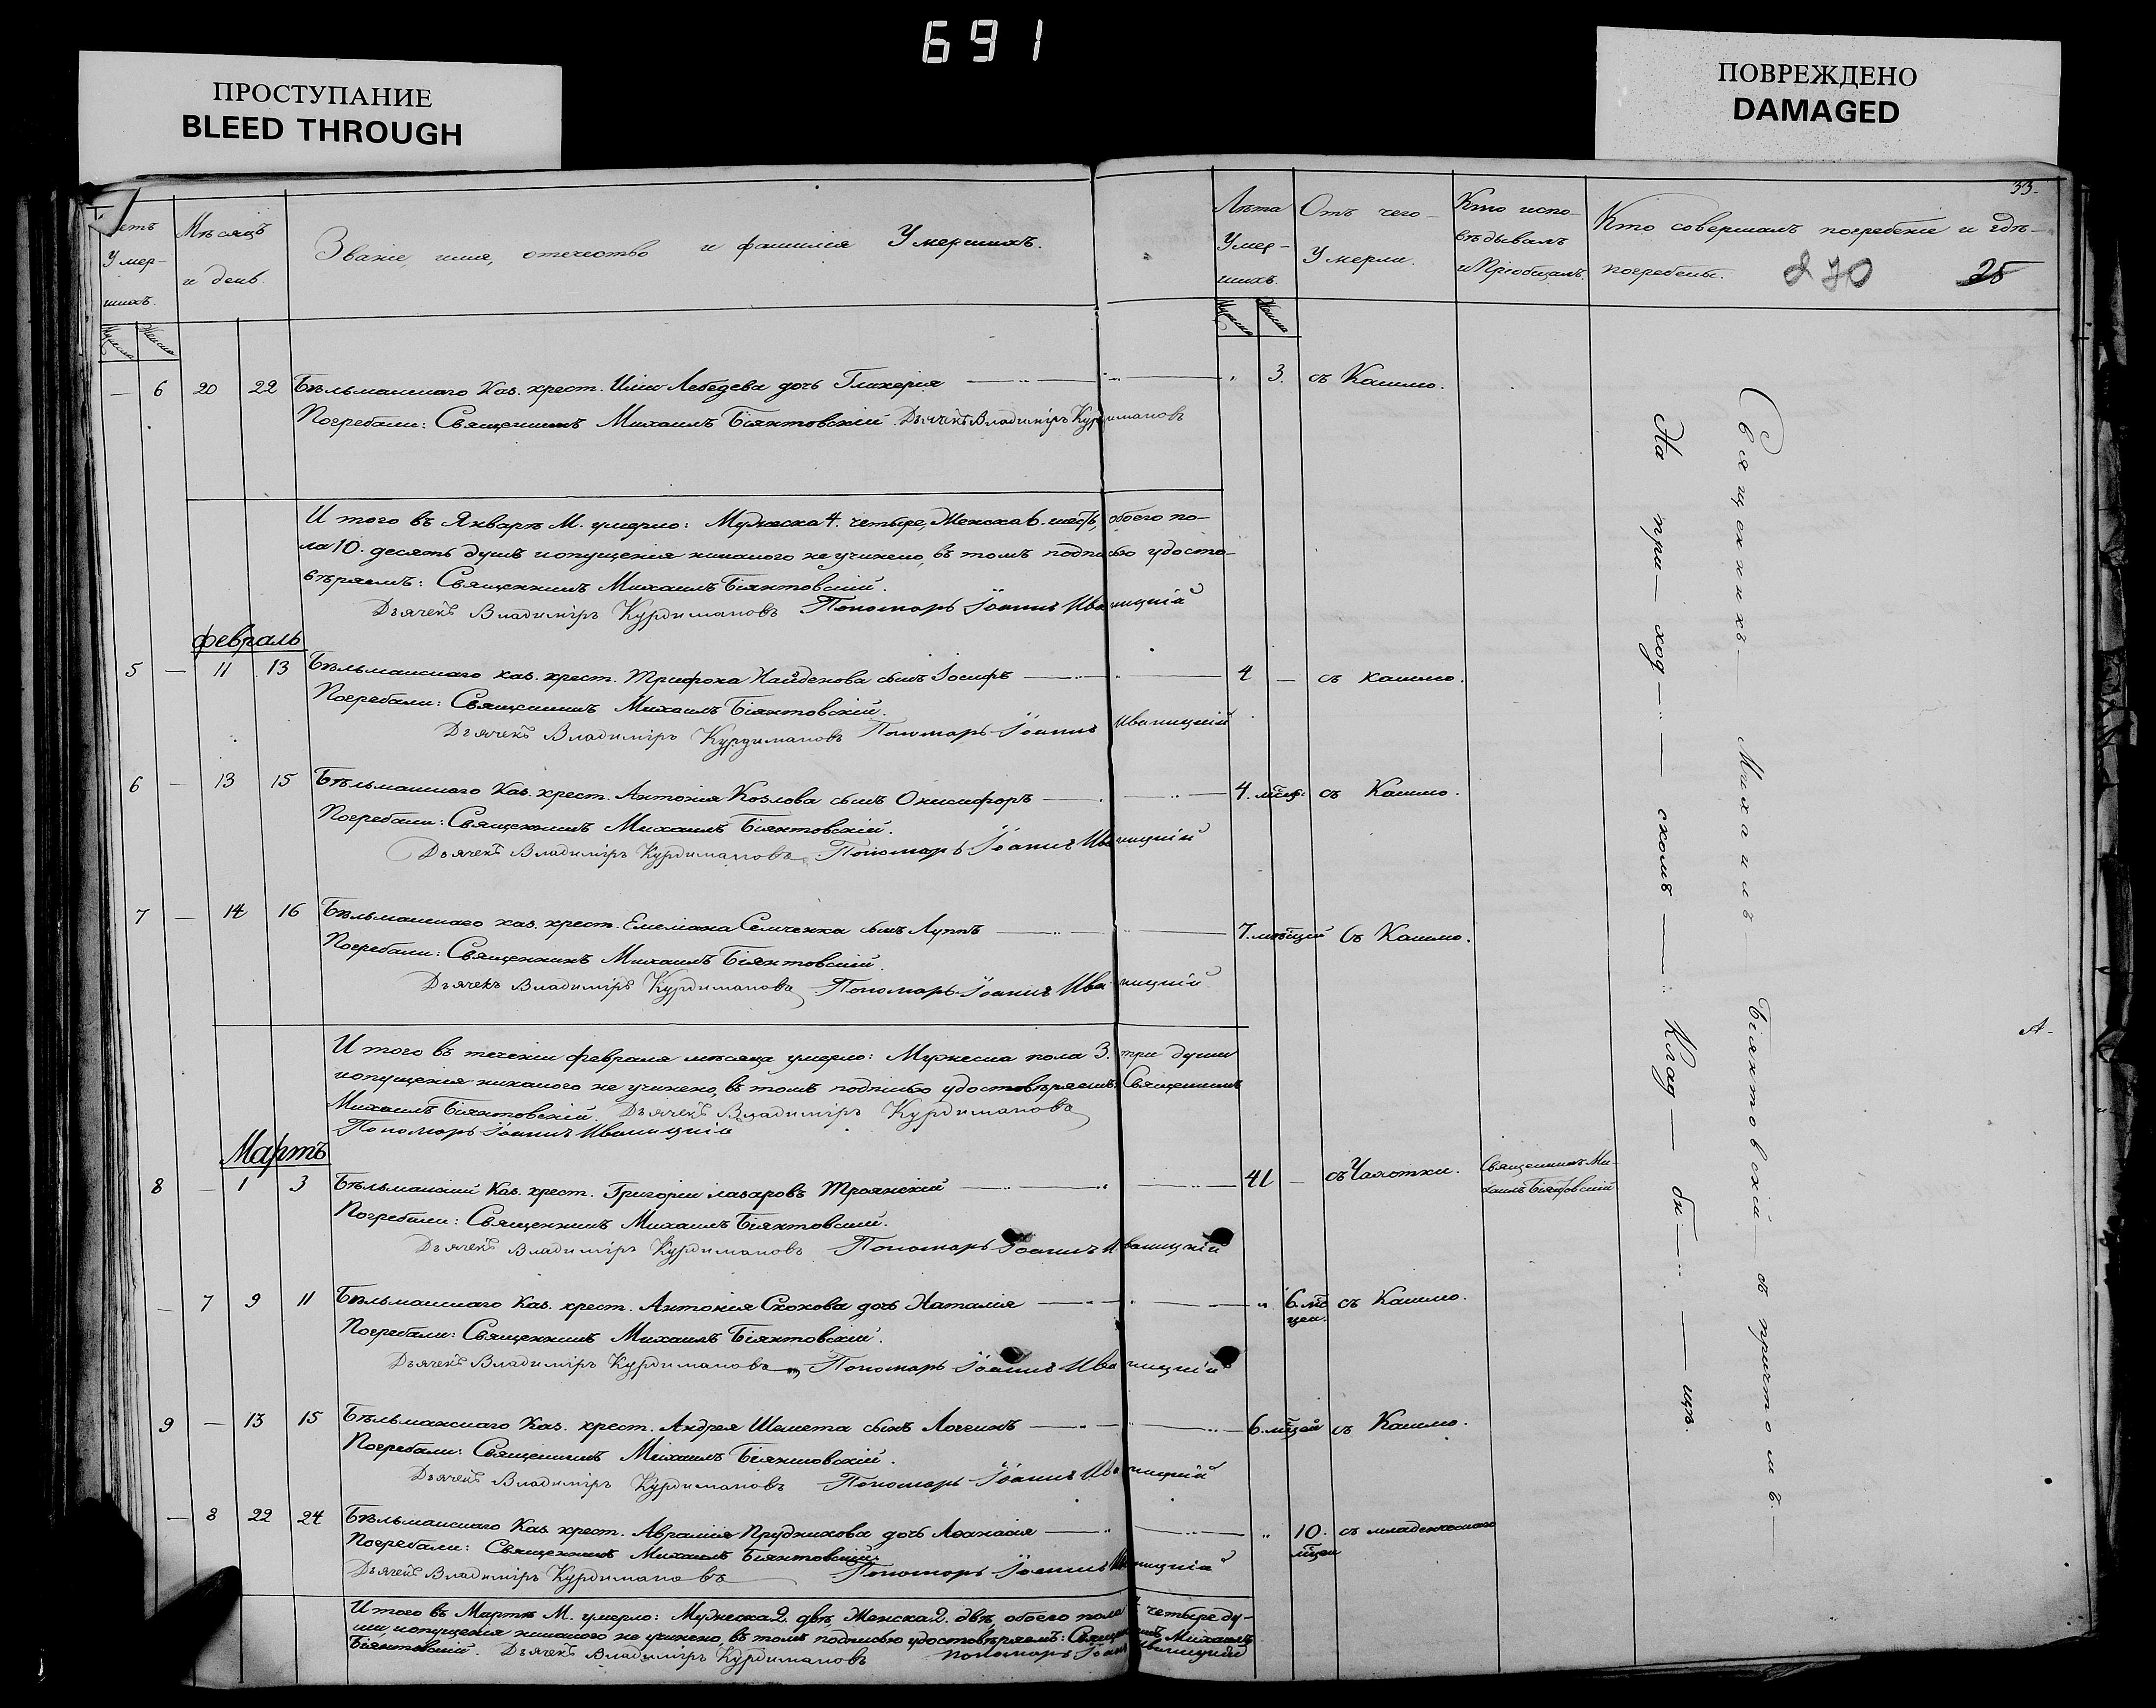 691
ПРОСТУПАНИЕ
BLEED THROUGH
ПОВРЕЖДЕНО
DAMAGED
33.
етъ Умер- шихъ.
Мѣсяцъ и день.
Званіе, имя, отечество и фамилія Умершихъ.
Лѣта Умер- шихъ.
Отъ чего Умерли.
Кто испо- вѣдывалъ и Пріобщалъ.
Кто совершалъ погребеніе и гдѣ погребены.
270 25
Мужеска Женска
Мужеска Женска
— 6 20 22 Бѣльманскаго Каз. крест. Иліи Лебедева дочь Гликерія „ 3. съ Кашлю.
Погребали: Священникъ Михаилъ Біянтовскій. Дьячекъ Владиміръ Курдимановъ
И того въ Январѣ М. умерло: Мужеска 4. четыре, Женска 6. шесть, обоего по-
ла 10. десять душъ и опущенія никакого не учинено, въ томъ подписью удосто-
вѣряемъ: Священникъ Михаилъ Біянтовскій.
Дьячекъ Владиміръ Курдимановъ Пономарь Іоаннъ Иваницкій
Февраль
5 — 11 13 Бѣльманскаго каз. крест. Трифона Найденова сынъ Іосифъ 4 — съ кашлю.
Погребали: Священникъ Михаилъ Біянтовскій.
Дьячекъ Владиміръ Курдимановъ Пономарь Іоаннъ Иваницкій
6 — 13 15 Бѣльманскаго Каз. крест. Антонія Козлова сынъ Онисифоръ 4. мѣсц. съ Кашлю.
Погребали: Священникъ Михаилъ Біянтовскій.
Дьячекъ Владиміръ Курдимановъ Пономарь Іоаннъ Иваницкій
7 — 14 16 Бѣльманскаго каз. крест. Емеліана Семченка сынъ Луппъ 7. мѣсцей съ Кашлю.
Погребали: Священникъ Михаилъ Біянтовскій.
Дьячекъ Владиміръ Курдимановъ Пономарь Іоаннъ Иваницкій
И того въ теченіи февраля мѣсяца умерло: Мужеска пола 3. три души
и опущенія никакого не учинено, въ томъ подписью удостовѣряемъ: Священникъ
Михаилъ Біянтовскій. Дьячекъ Владиміръ Курдимановъ
Пономарь Іоаннъ Иваницкій
Мартъ
8 — 1 3 Бѣльманскій Каз. крест. Григорій Лазаровъ Троянскій 41 — съ Чахотки. Священникъ Ми- хаилъ Біянтовскій
Погребали: Священникъ Михаилъ Біянтовскій.
Дьячекъ Владиміръ Курдимановъ Пономарь Іоаннъ Иваницкій
— 7 9 11 Бѣльманскаго Каз. крест. Антонія Скокова дочь Наталія „ 6. мѣс цей. съ Кашлю.
Погребали: Священникъ Михаилъ Біянтовскій.
Дьячекъ Владиміръ Курдимановъ Пономарь Іоаннъ Иваницкій
9 — 13 15 Бѣльманскаго Каз. крест. Андрея Шемета сынъ Логгинъ 6. мѣсцей съ Кашлю.
Погребали: Священникъ Михаилъ Біянтовскій.
Дьячекъ Владиміръ Курдимановъ Пономарь Іоаннъ Иваницкій
— 8 22 24 Бѣльманскаго Каз. крест. Аврамія Прудникова дочь Аѳанасія „ 10. мѣсцей съ младенческой
Погребали: Священникъ Михаилъ Біянтовскій.
Дьячекъ Владиміръ Курдимановъ Пономарь Іоаннъ Иваницкій
И того въ Мартѣ М. умерло: Мужеска 2. двѣ Женска 2. двѣ обоего пола 4 четыре ду-
ши, и опущенія никакого не учинено, въ томъ подписью удостовѣряемъ: Священникъ Михаилъ
Біянтовскій. Дьячекъ Владиміръ Курдимановъ пономарь Іоаннъ Иваницкій
Священникъ Михаилъ Біянтовскій съ причтомъ
На при-ход-скомъ Клад-би-щѣ.